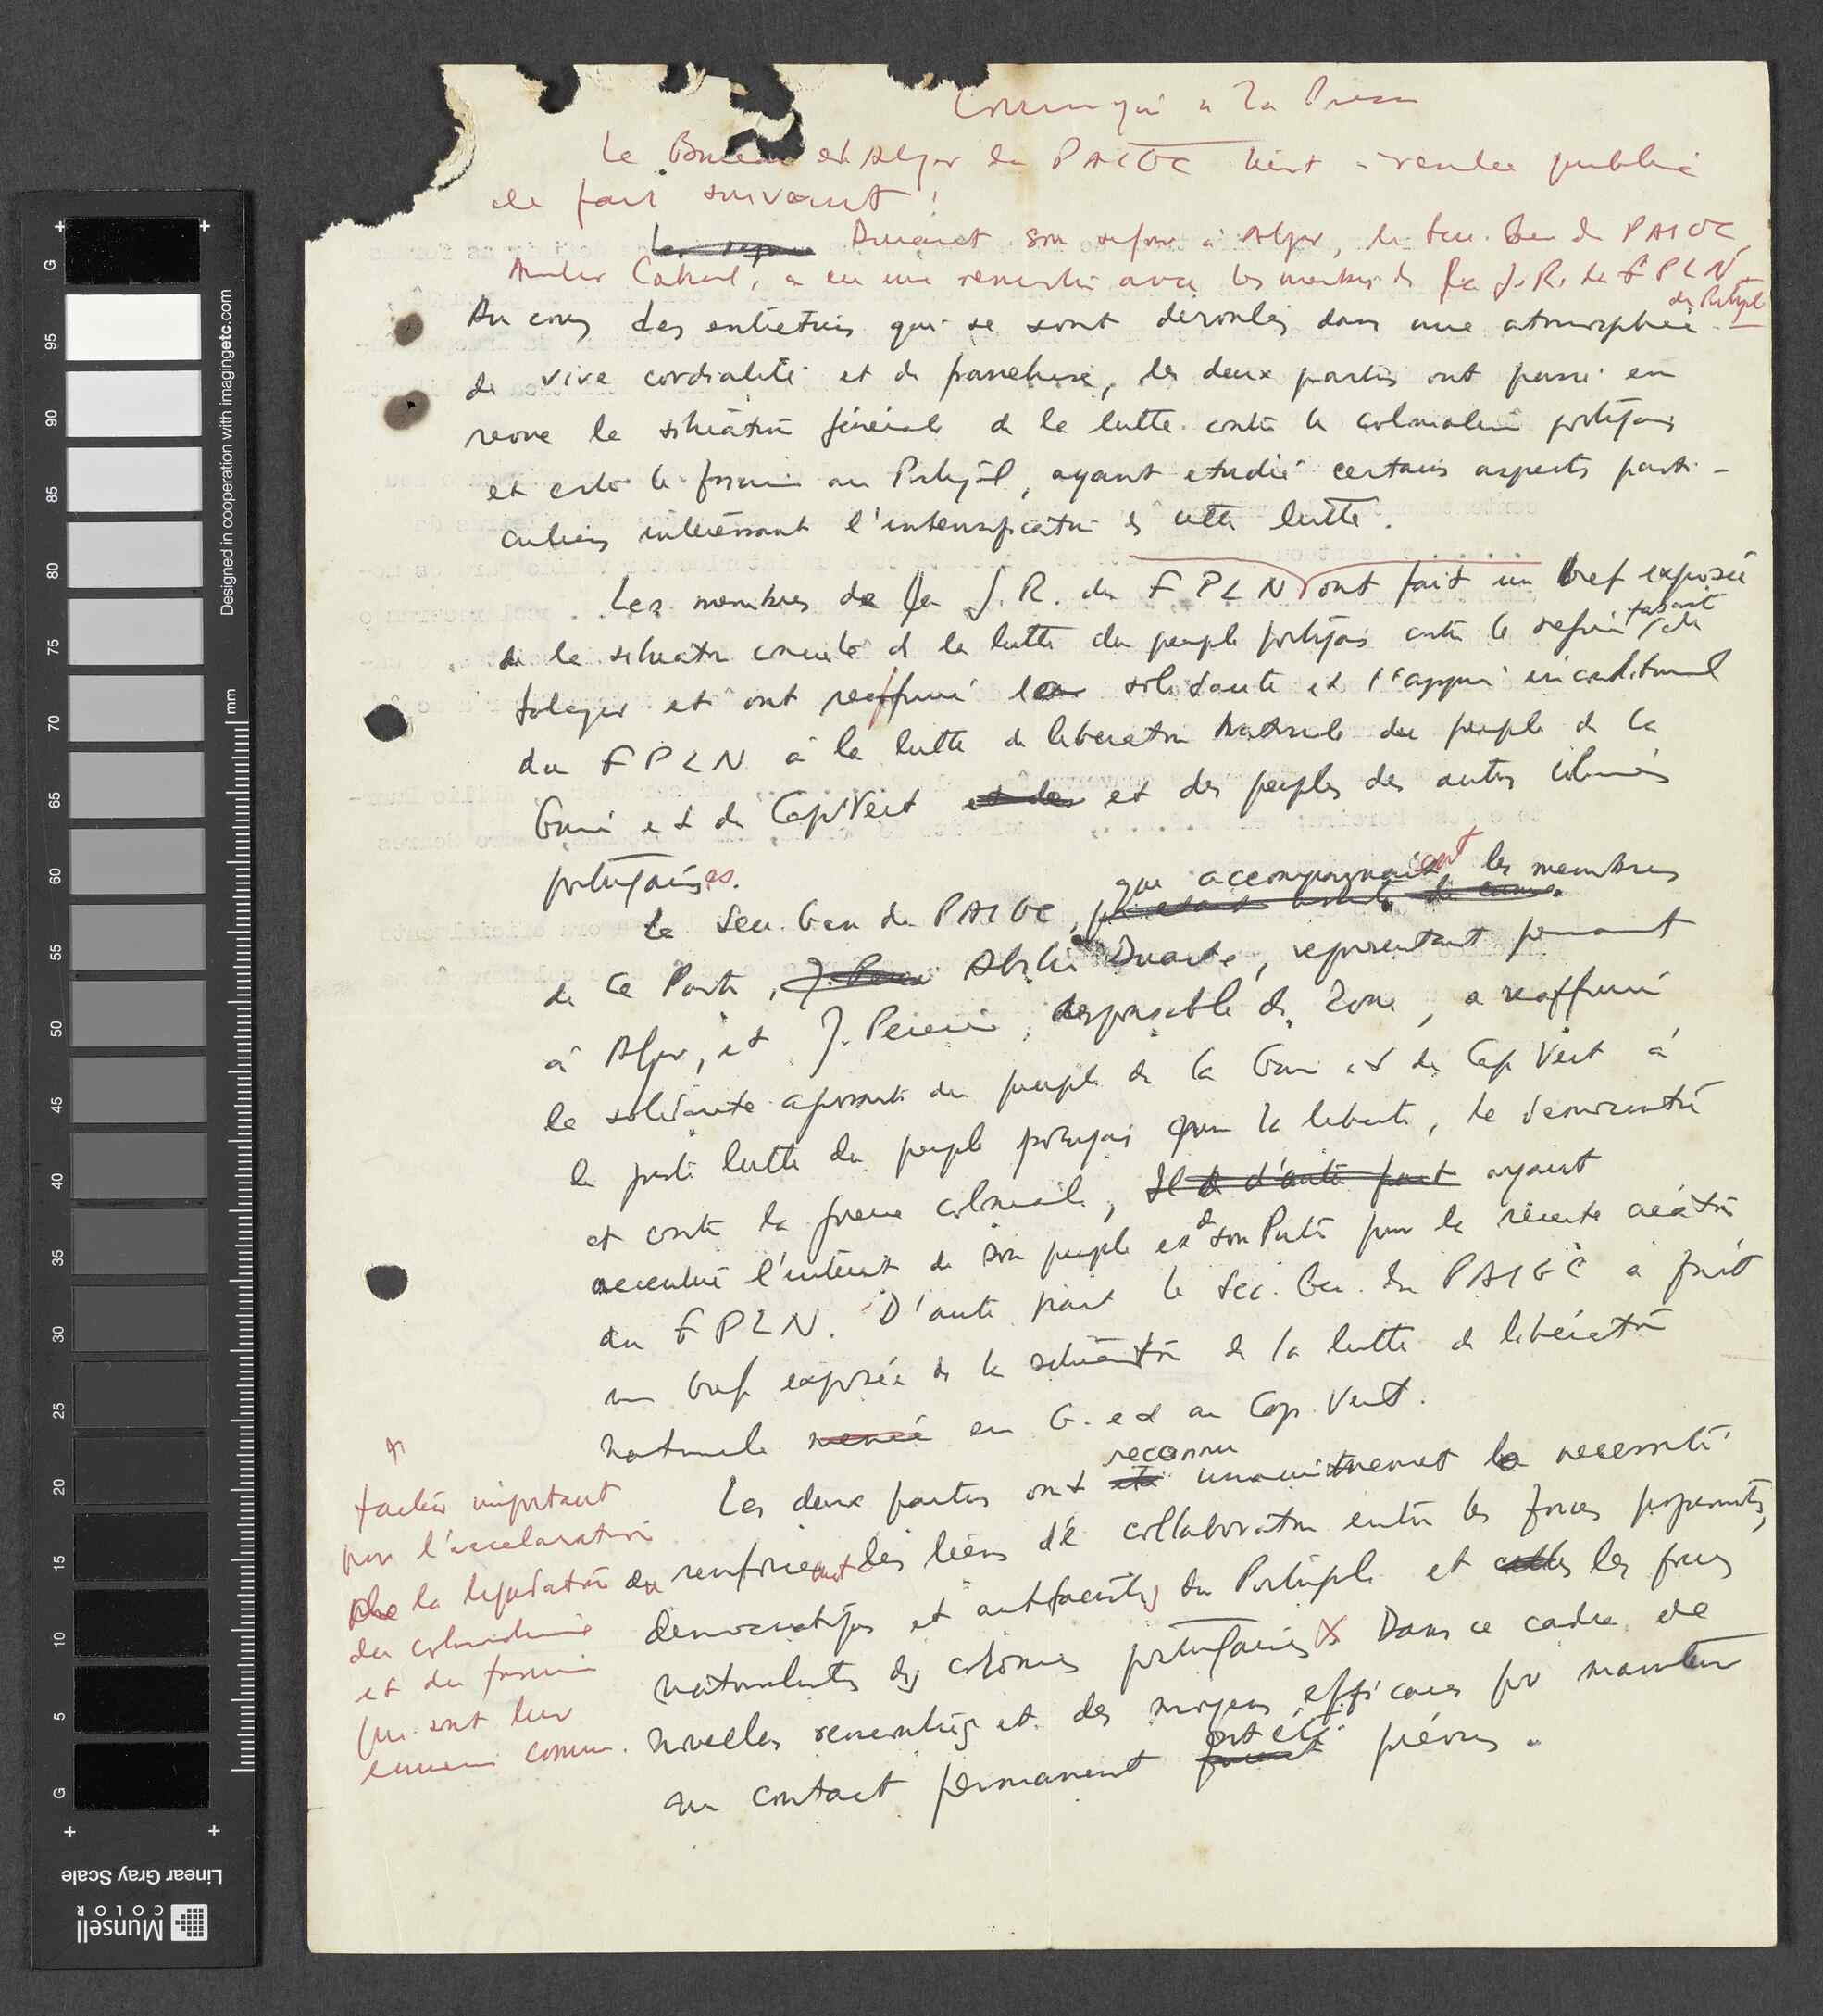 Communiqué à la Presse
Le Bureau d'Alger du PAIGC tient à rendre public
le fait suivant :
Durant son séjour à Alger, le Secr. Gen. du PAIGC,
Amilcar Cabral, a eu une rencontre avec les membres de la J.R. du FPLN
du Portugal
Au cours des entretiens qui se sont deroulés dans une atmosphère
de vive cordialité et de franchise, les deux parties ont passé en
revue la situation générale de la lutte contre le colonialisme portugais
et contre le fascisme au Portugal, ayant etudié certains aspects parti-
culiers intéressant l'intensification de cette lutte.
Les membres de la J.R. du FPLN ont fait un bref exposée
de la situation concrète de la lutte du peuple portugais contre le regime fasciste de
Salazar et ont reaffirmé la solidarité et l'appui inconditionnel
du FPLN à la lutte de liberation nationale du peuple de la
Guinée et du Cap Vert et des peuples des autres colonies
portugaises.
Le Secr. Gen du PAIGC, que accompagnaient les membres
de ce Parti, Abilio Duarte, representant permanent
à Alger, et J. Pereira, responsable de Zone, a reaffirmé
la solidarité agissante du peuple de la Guinée et du Cap Vert à
la juste lutte du peuple portugais pour la liberté, la démocratie
et contre la guerre coloniale, ayant
accentué l'intérêt de son peuple et de son Parti pour la récente création
du FPLN. D'autre part le Sec. Gen. du PAIGC a fait
un bref exposée de la situation de la lutte de libération
nationale en G. et au Cap Vert.
Les deux parties ont reconnu unanimement la necessité
de renforcement des liens de collaboration entre les forces progressistes,
democratiques et antifascistes du Portugal et les forces
nationalistes des colonies portugaises X Dans ce cadre de
nouvelles rencontres et des moyens efficaces pour maintenir
un contact permanent ont été prévus.
facteur important
pour l'acceleration
de la liquidation
du colonialisme
et du fascisme
qui sont leur
ennemi commun.
Designed in cooperation with imagingetc.com
mm
G
95
90
85
80
75
70
65
60
55
50
45
40
35
30
25
20
15
10
5
G
Linear Gray Scale
Munsell
COLOR